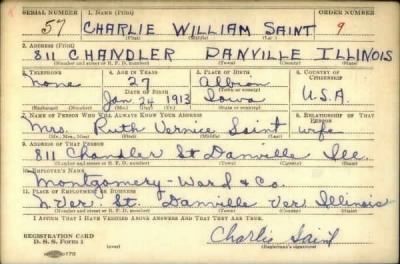 SERIAL NUMBER 1. NAME (Print) ORDER NUMBER
57 CHARLIE WILLIAM SAINT 9
(First) (Middle) (Last)
2. ADDRESS (Print)
811 CHANDLER DANVILLE ILLINOIS
(Number and street or R. F. D. number) (Town) (County) (State)
3. TELEPHONE 4. AGE IN YEARS 5. PLACE OF BIRTH 6. COUNTRY OF CITIZENSHIP
None 27 Albion
DATE OF BIRTH
Jan 24 1913 Iowa U.S.A.
(Exchange) (Number) (Mo.) (Day) (Yr.) (State or country)
7. NAME OF PERSON WHO WILL ALWAYS KNOW YOUR ADDRESS 8. RELATIONSHIP OF THAT PERSON
Mrs. Ruth Vernice Saint wife
(Mr., Mrs., Miss) (First) (Middle) (Last)
9. ADDRESS OF THAT PERSON
811 Chandler St Danville Ill.
(Number and street or R. F. D. number) (Town) (County) (State)
10. EMPLOYER'S NAME
Montgomery-Ward & Co.
11. PLACE OF EMPLOYMENT OR BUSINESS
N. Ver. St. Danville Ver. Illinois
(Number and street or R. F. D. number) (Town) (County) (State)
I AFFIRM THAT I HAVE VERIFIED ABOVE ANSWERS AND THAT THEY ARE TRUE.
REGISTRATION CARD
D. S. S. Form 1 Charlie Saint
(Registrant's signature)